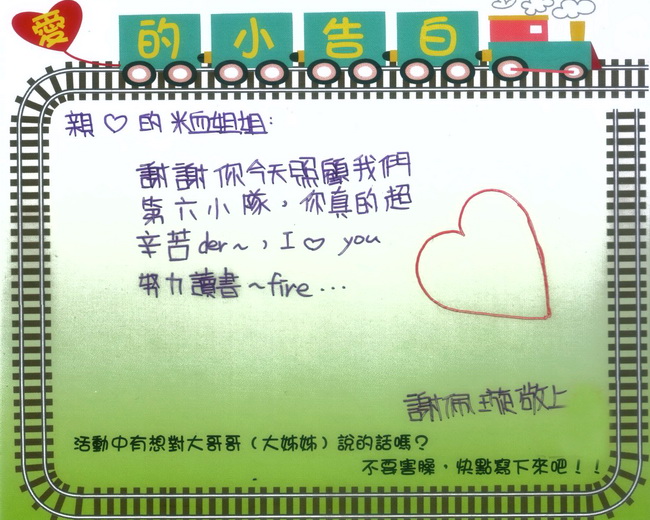 愛的小告白
親♡的米血姐姐:
謝謝你今天照顧我們
第六小隊,你真的超
辛苦der~,I♡you
努力讀書~fire...
謝佩璇敬上
活動中有想對大哥哥(大姊姊)說的話嗎?
不要害臊,快點寫下來吧!!